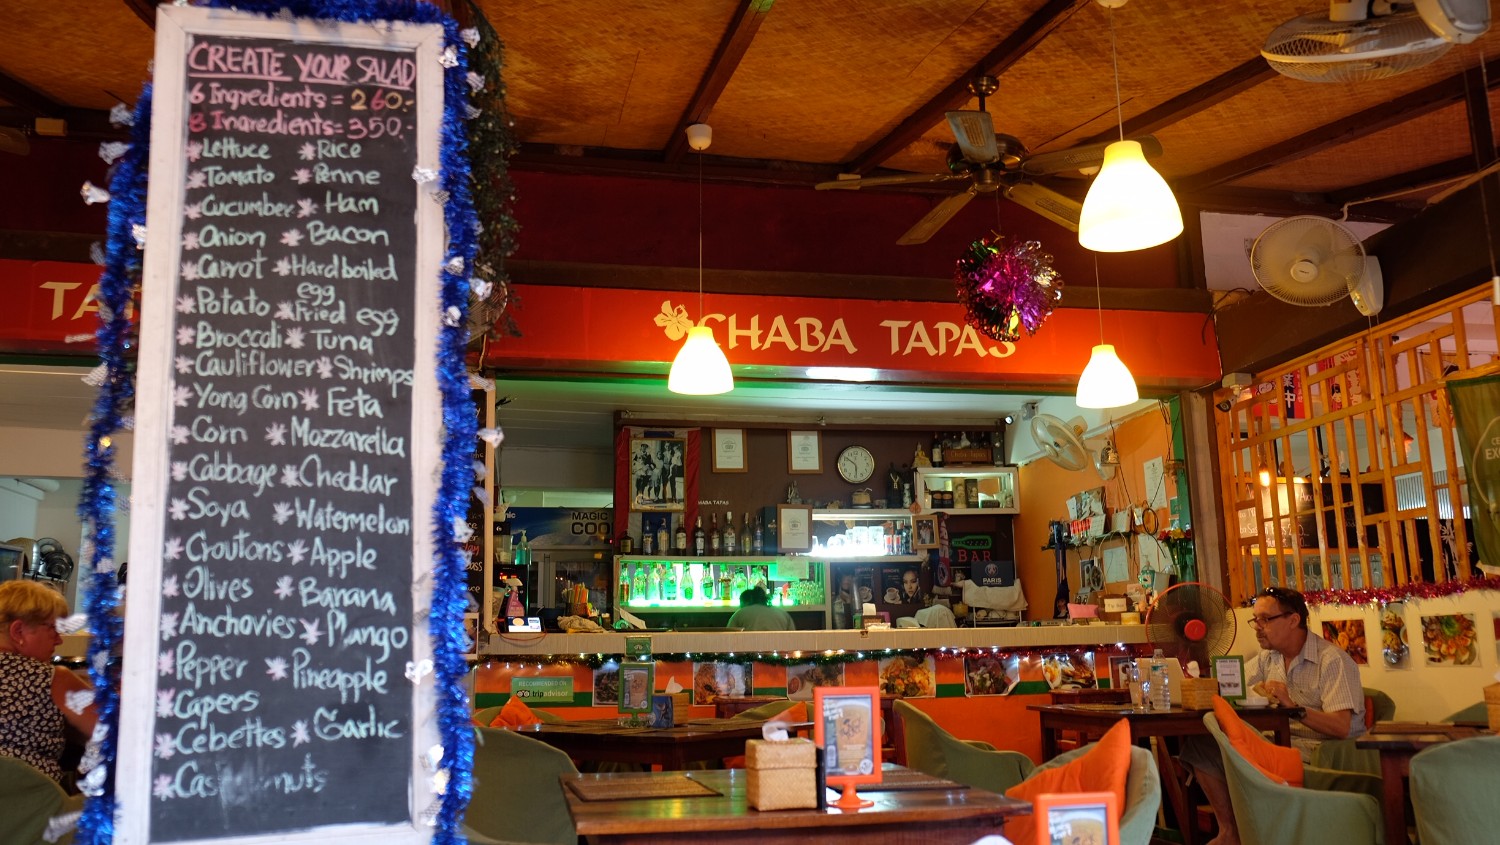 CREATE YOUR SALAD
6 Ingredients = 260.-
8 Ingredients = 350.-
*Lettuce *Rice
*Tomato *Penne
*Cucumber *Ham
*Onion *Bacon
*Carrot *Hard boiled
egg
*Potato *Fried egg
*Broccoli *Tuna
*Cauliflower *Shrimps
*Yong Corn *Feta
*Corn *Mozzarella
*Cabbage *Cheddar
*Soya *Watermelon
*Croutons *Apple
*Olives *Banana
*Anchovies *Mango
*Pepper *Pineapple
*Capers
*Cebettes *Garlic
CHABA TAPAS
MAGIC
COO
HABA TAPAS
BAR
PARIS
RECOMMENDED ON
tripadvisor